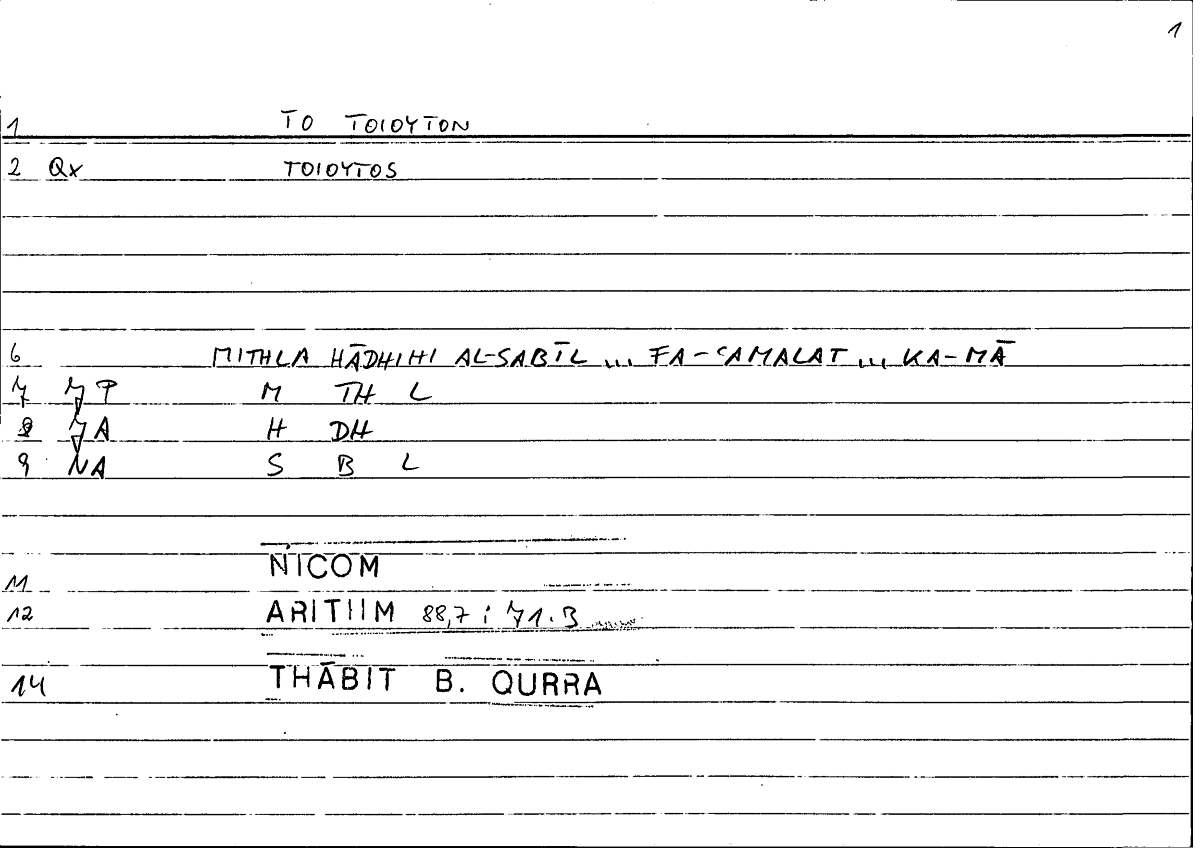 1
1 TO TOIOYTON
2 Qx TOIOYTOS
6 MITHLA HĀDHIHI AL-SABĪL ... FA-ʿAMALAT ... KA-MĀ
7 P M TH L
8 A H DH
9 NA S B L
11 NICOM
12 ARITIIM 88,7 ; 71.3
14 THĀBIT B. QURRA